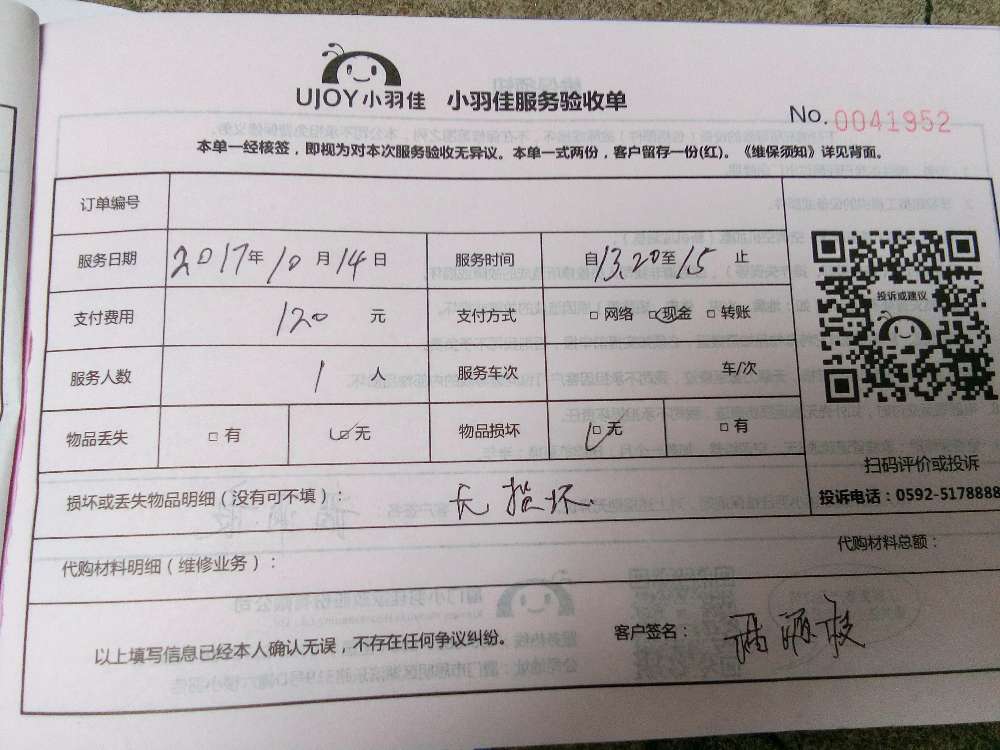 UJOY小羽佳 小羽佳服务验收单
No. 0041952
本单一经核签，即视为对本次服务验收无异议。本单一式两份，客户留存一份(红)。《维保须知》详见背面。
订单编号
服务日期 2017年10月14日 服务时间 自1320至15止
支付费用 120 元 支付方式 □网络 □现金 □转账
服务人数 1 人 服务车次 车/次
物品丢失 □有 □无 物品损坏 □无 □有
投诉或建议
扫码评价或投诉
投诉电话：0592-5178888
损坏或丢失物品明细（没有可不填）： 无损坏.
代购材料明细（维修业务）： 代购材料总额：
以上填写信息已经本人确认无误，不存在任何争议纠纷。 客户签名：